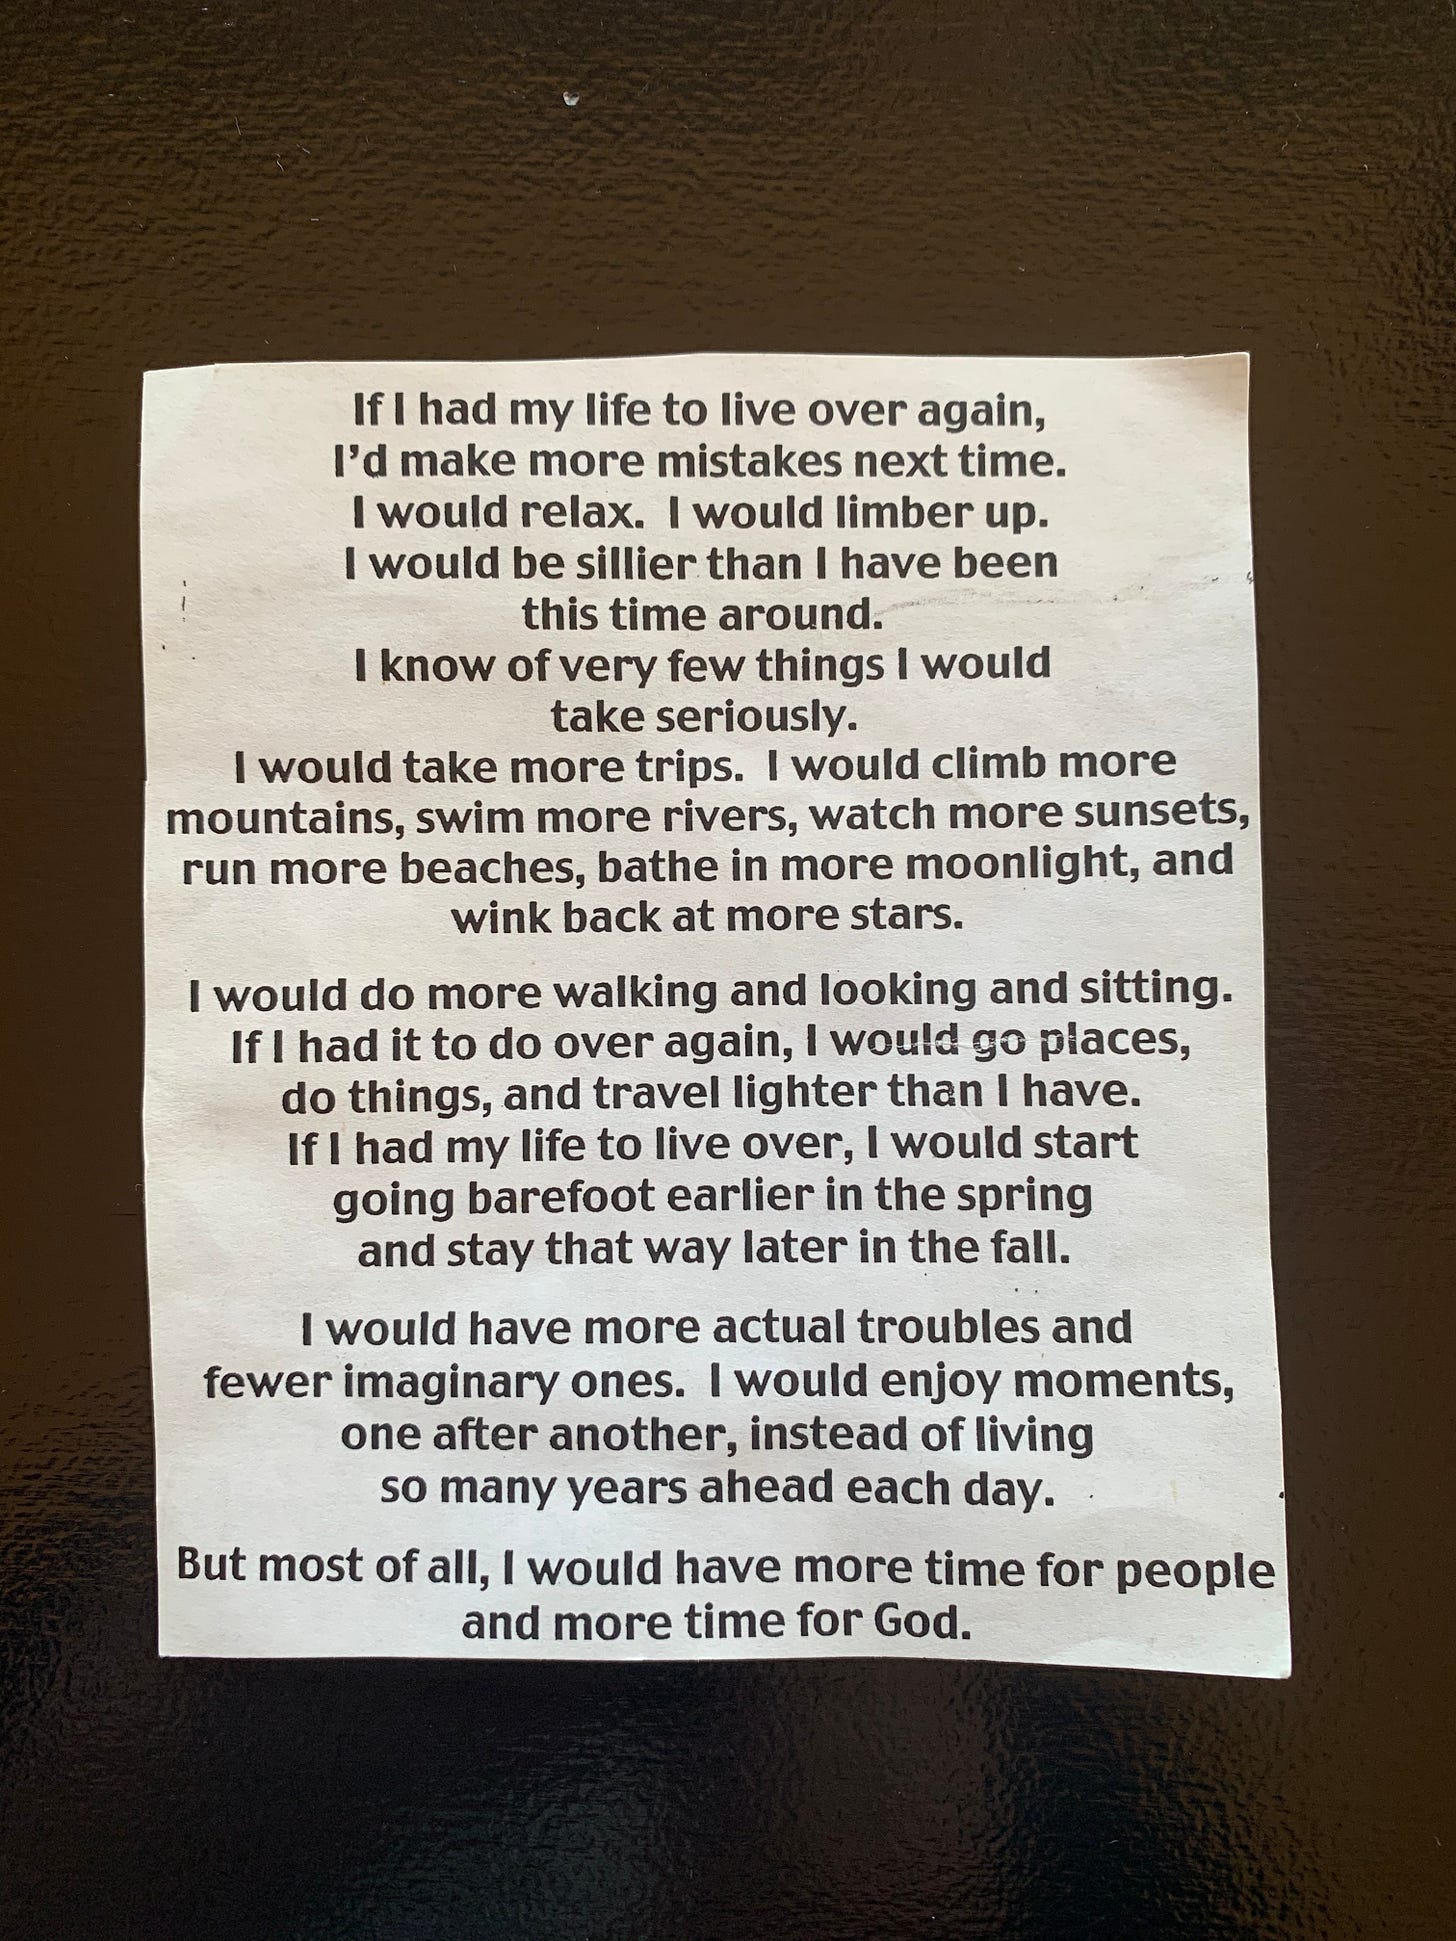 If I had my life to live over again,
I'd make more mistakes next time.
I would relax.  I would limber up.
I would be sillier than I have been
this time around.
I know of very few things I would
take seriously.
I would take more trips.  I would climb more
mountains, swim more rivers, watch more sunsets,
run more beaches, bathe in more moonlight, and
wink back at more stars.
I would do more walking and looking and sitting.
If I had it to do over again, I would go places,
do things, and travel lighter than I have.
If I had my life to live over, I would start
going barefoot earlier in the spring
and stay that way later in the fall.
I would have more actual troubles and
fewer imaginary ones.  I would enjoy moments,
one after another, instead of living
so many years ahead each day.
But most of all, I would have more time for people
and more time for God.